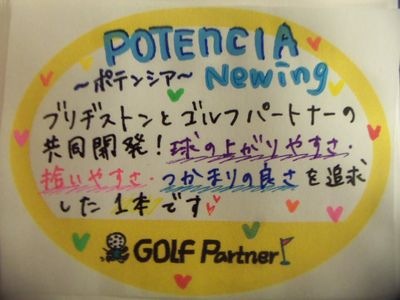 POTENCIA
～ポテンシア～ Newing
ブリヂストンとゴルフパートナーの
共同開発！球の上がりやすさ・
拾いやすさ・つかまりの良さを追求
した1本です
GOLF Partner